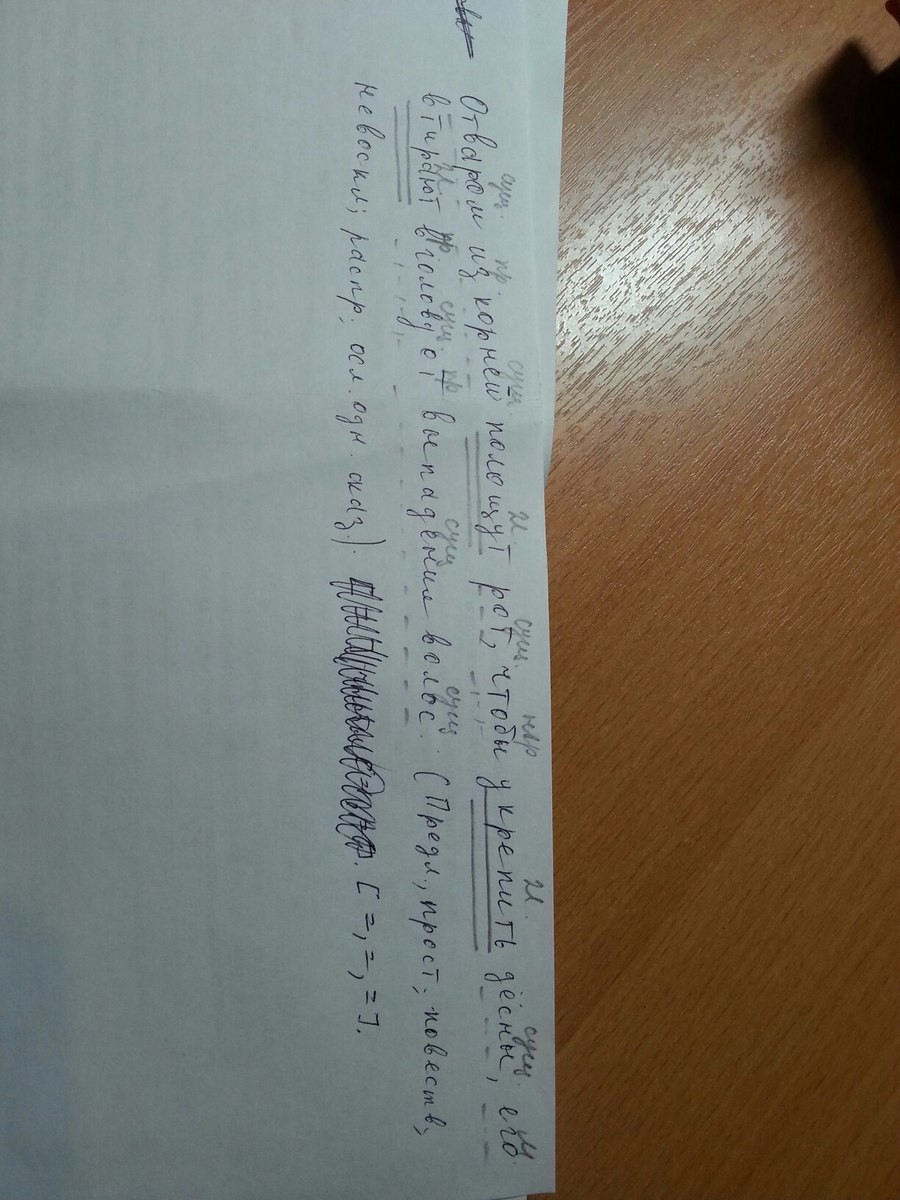 сущ. пр. сущ гл сущ. нар гл. сущ. м
Отваром из корней полощут рот, чтобы укрепить дёсны, его
гл. пр сущ. пр сущ сущ.
втирают в голову от выпадения волос. (Предл., прост; повеств;
невоскл; распр; осл. одн. сказ). . [ =, =, = ].